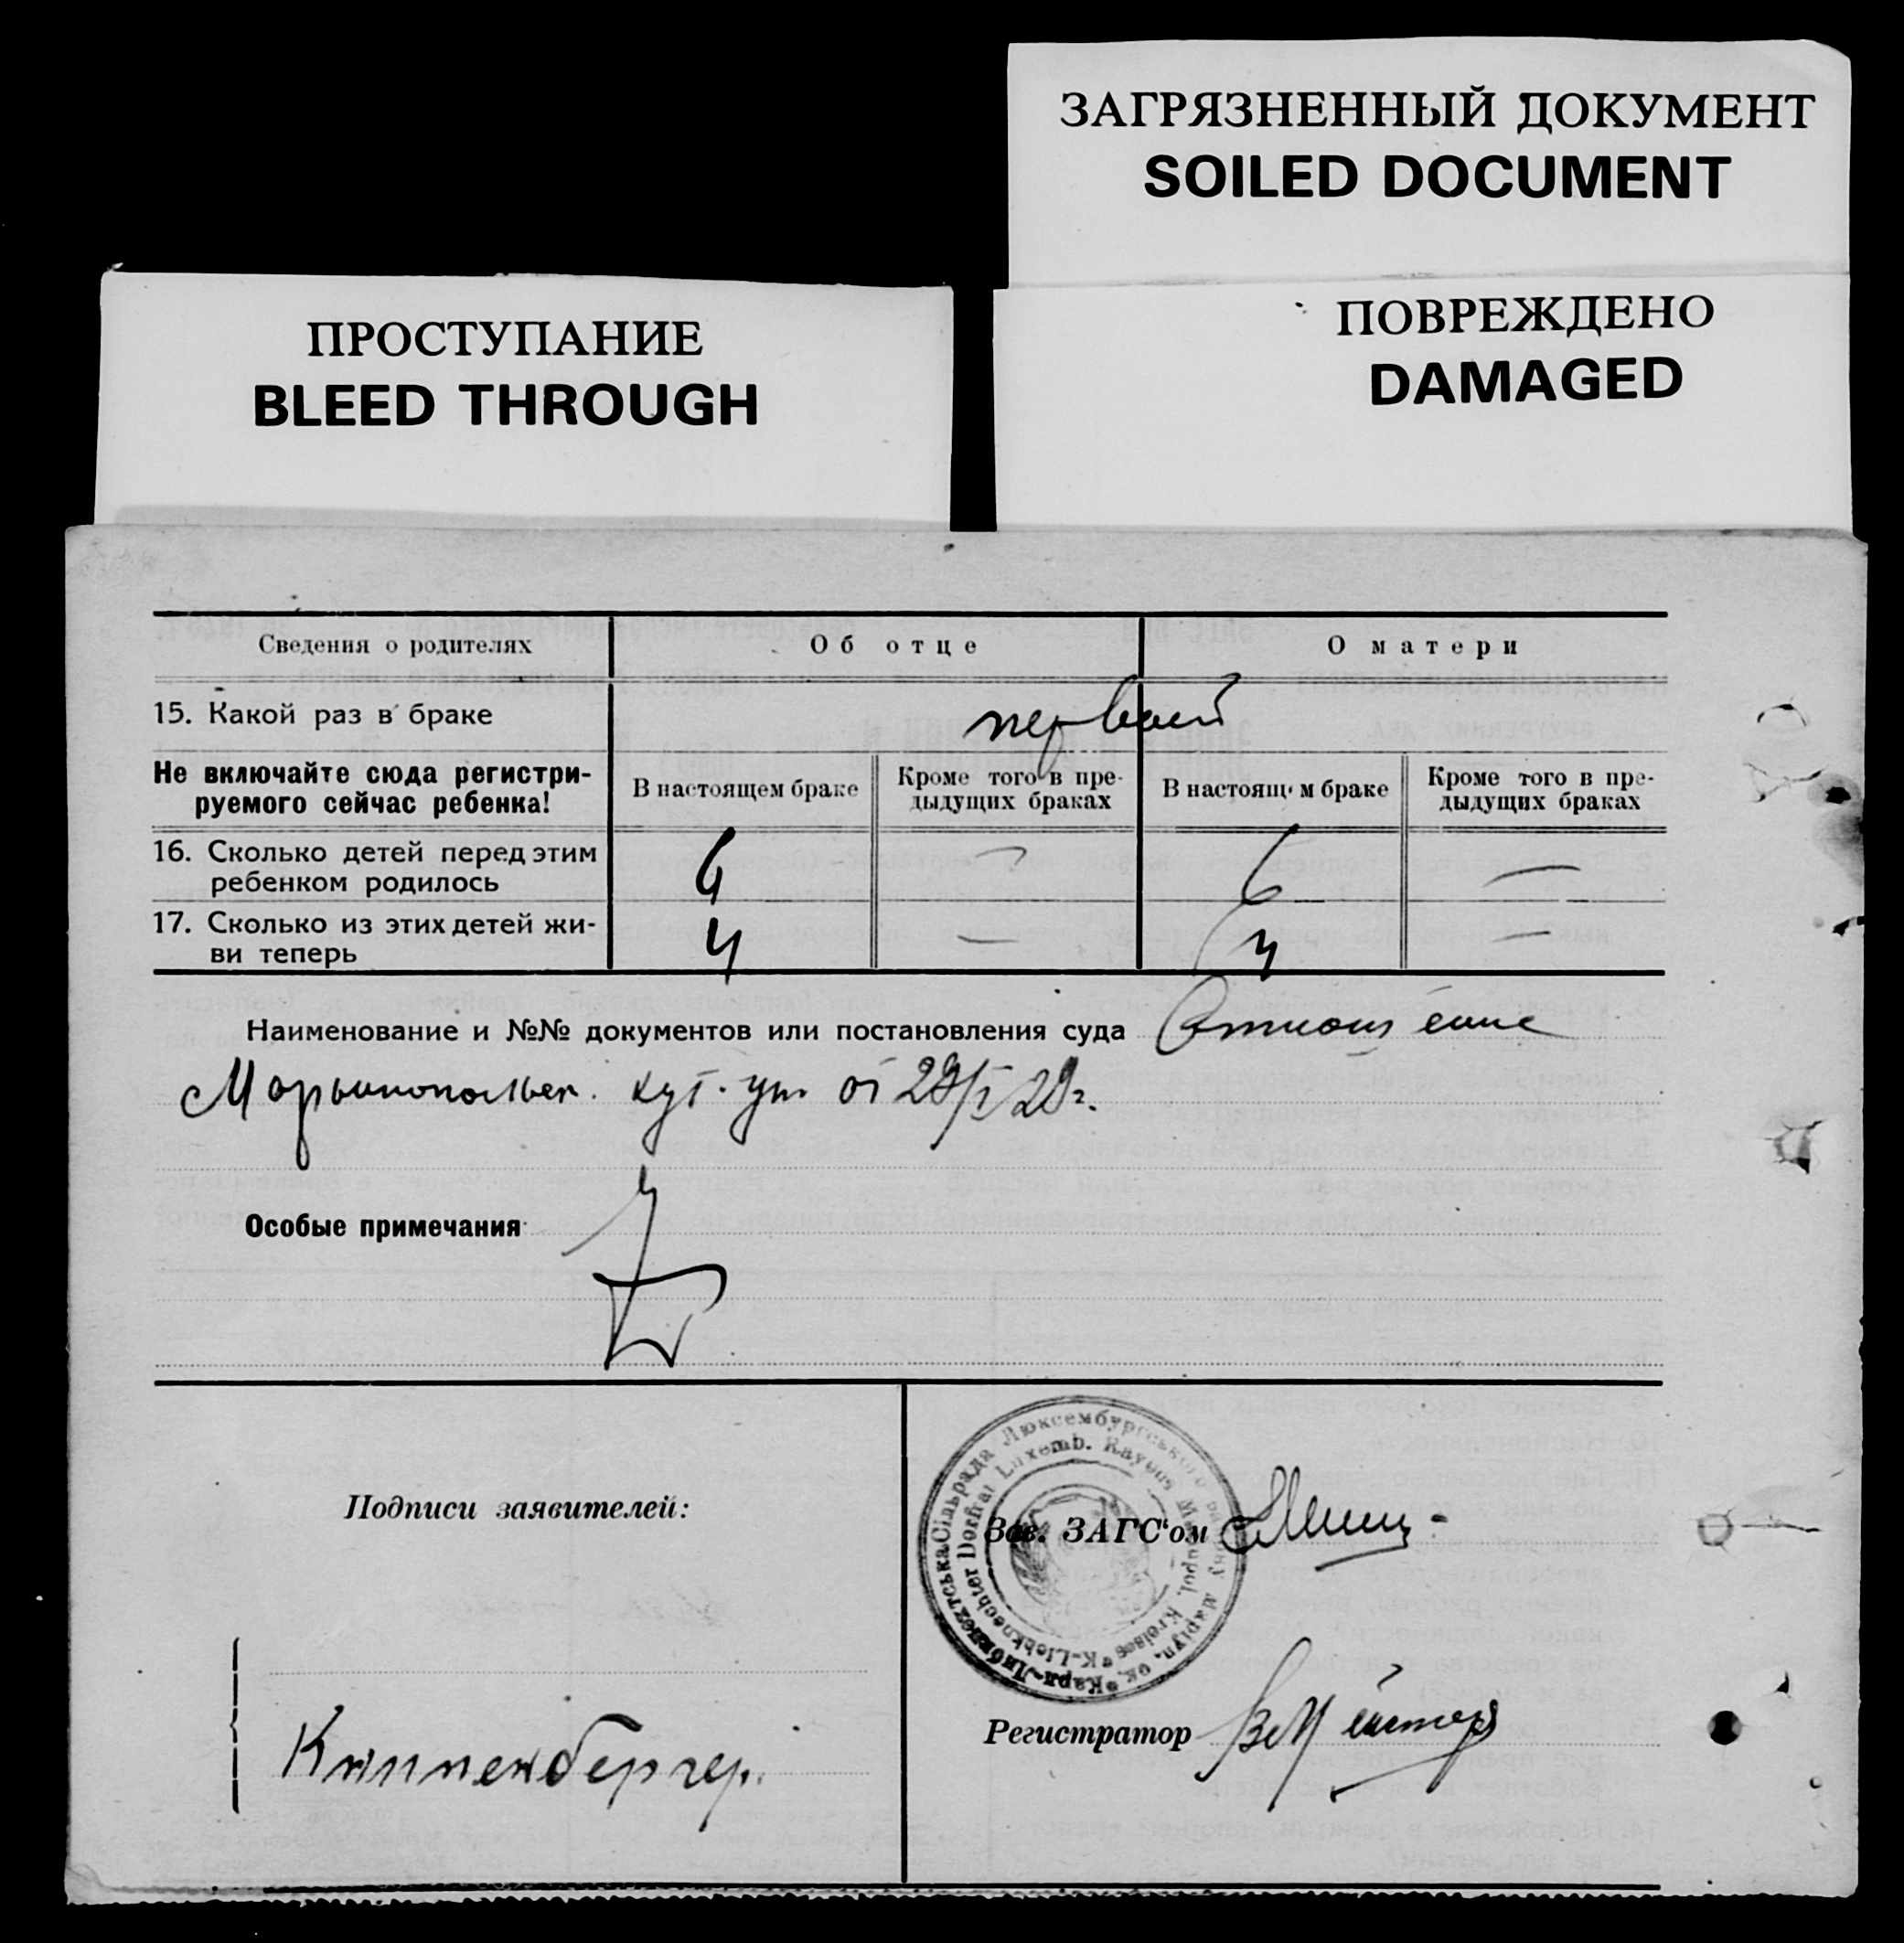 ЗАГРЯЗНЕННЫЙ ДОКУМЕНТ
SOILED DOCUMENT
ПОВРЕЖДЕНО
DAMAGED
ПРОСТУПАНИЕ
BLEED THROUGH
Сведения о родителях Об отце О матери
15. Какой раз в браке первый
Не включайте сюда регистри-
руемого сейчас ребенка!
В настоящем браке
Кроме того в пре-
дыдущих браках
В настоящем браке
Кроме того в пре-
дыдущих браках
16. Сколько детей перед этим
ребенком родилось
6 — 6 —
17. Сколько из этих детей жи-
ви теперь
4 — 4 —
Наименование и №№ документов или постановления суда Отношение
от 29/I 29г.
Особые примечания
Подписи заявителей:
Зав. ЗАГС'ом
Карл-Лібкнехтська Сільрада Люксембургського району Маріуп. ок.
K-Liebknechter Dorfrat Luxemb. Rayons Mariupol. Kreises
Регистратор
Клиппенбергер.